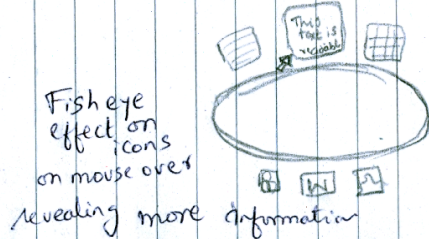 This
text is
readable
Fisheye
effect on
icons
on mouse over
revealing more information